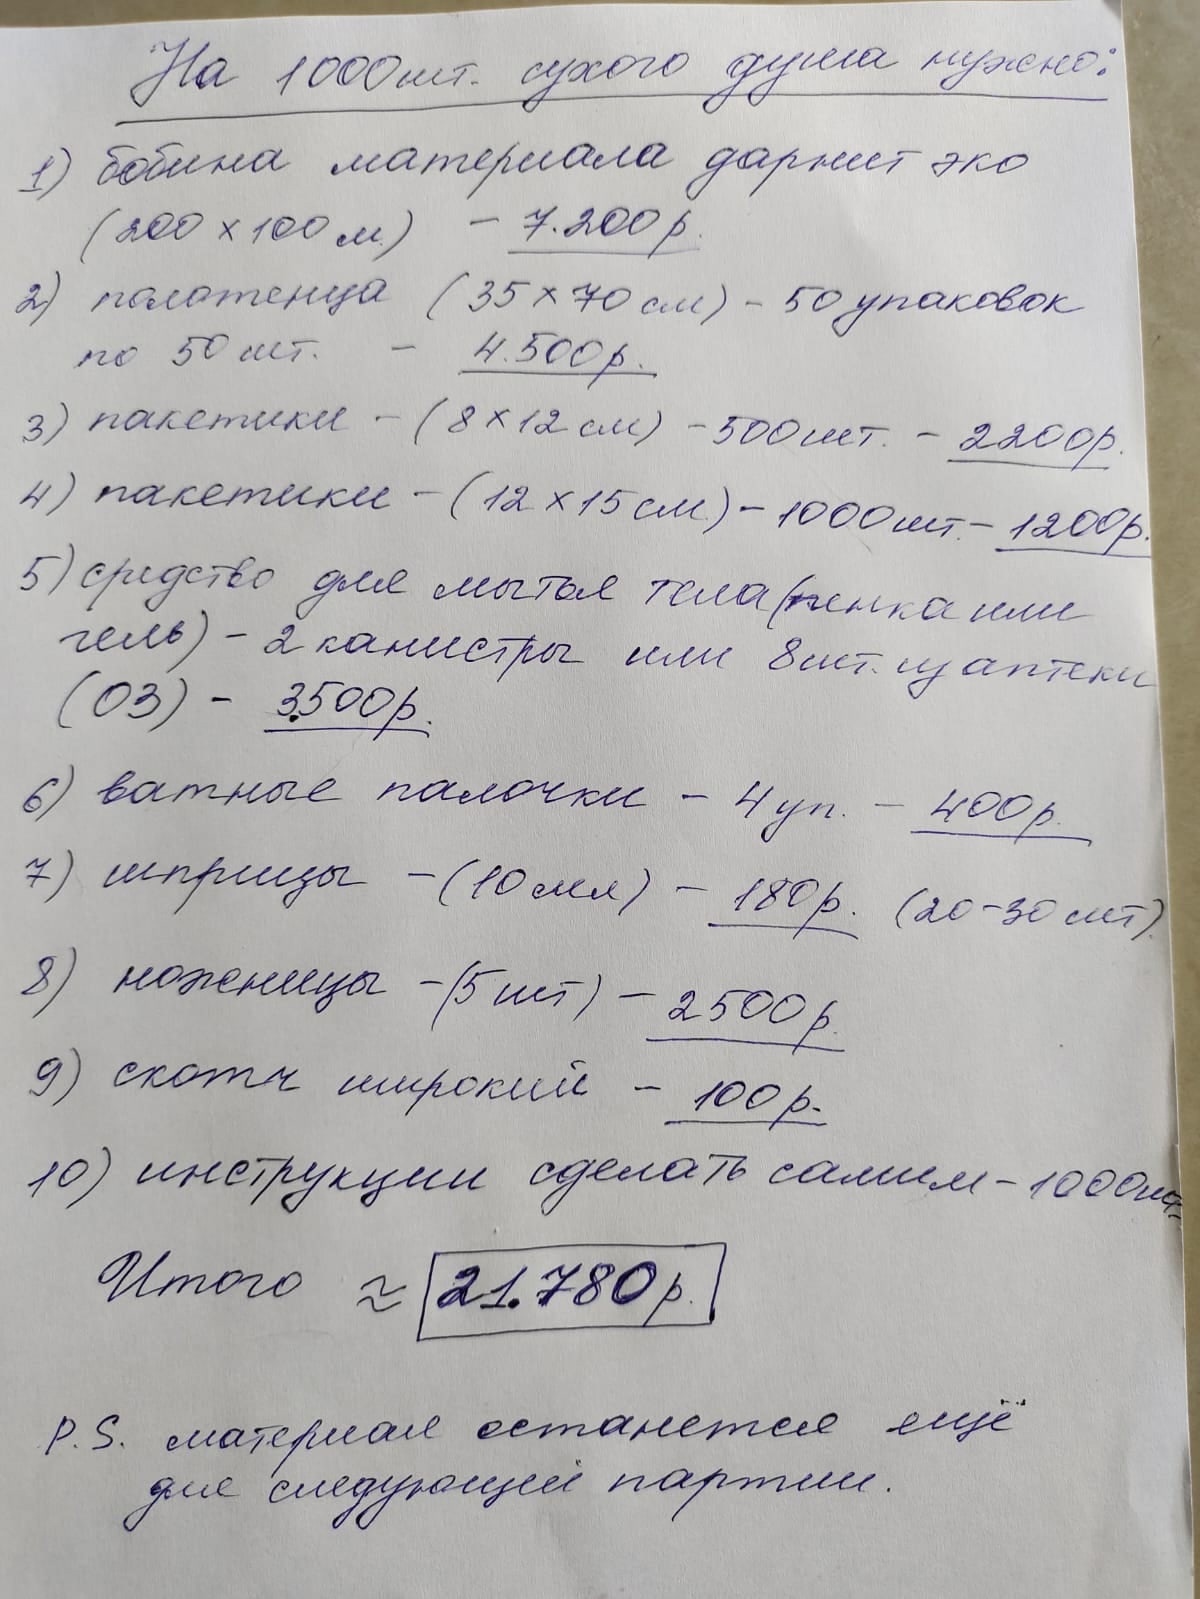 На 1000шт. сухого душа нужно:
1) бобина материала дорнит эко
(200 х 100 м.) - 7.200р.
2) полотенца (35 х 70 см) - 50 упаковок
по 50 шт. - 4.500р.
3) пакетики - (8 х 12 см) - 500шт. - 2200р.
4) пакетики - (12 х 15 см.) - 1000шт. - 1200р.
5) средство для мытья тела (пенка или
гель) - 2 канистры или 8шт. из аптеки
(ОЗ) - 3.500р.
6) ватные палочки - 4 уп. - 400р.
7) шприцы - (10 мл) - 180р. (20-30 шт).
8) ножницы - (5 шт) - 2500р.
9) скотч широкий - 100р.
10) инструкции сделать самим - 1000шт.
Итого ≈ 21.780р.
P.S. материал останется ещё
для следующей партии.